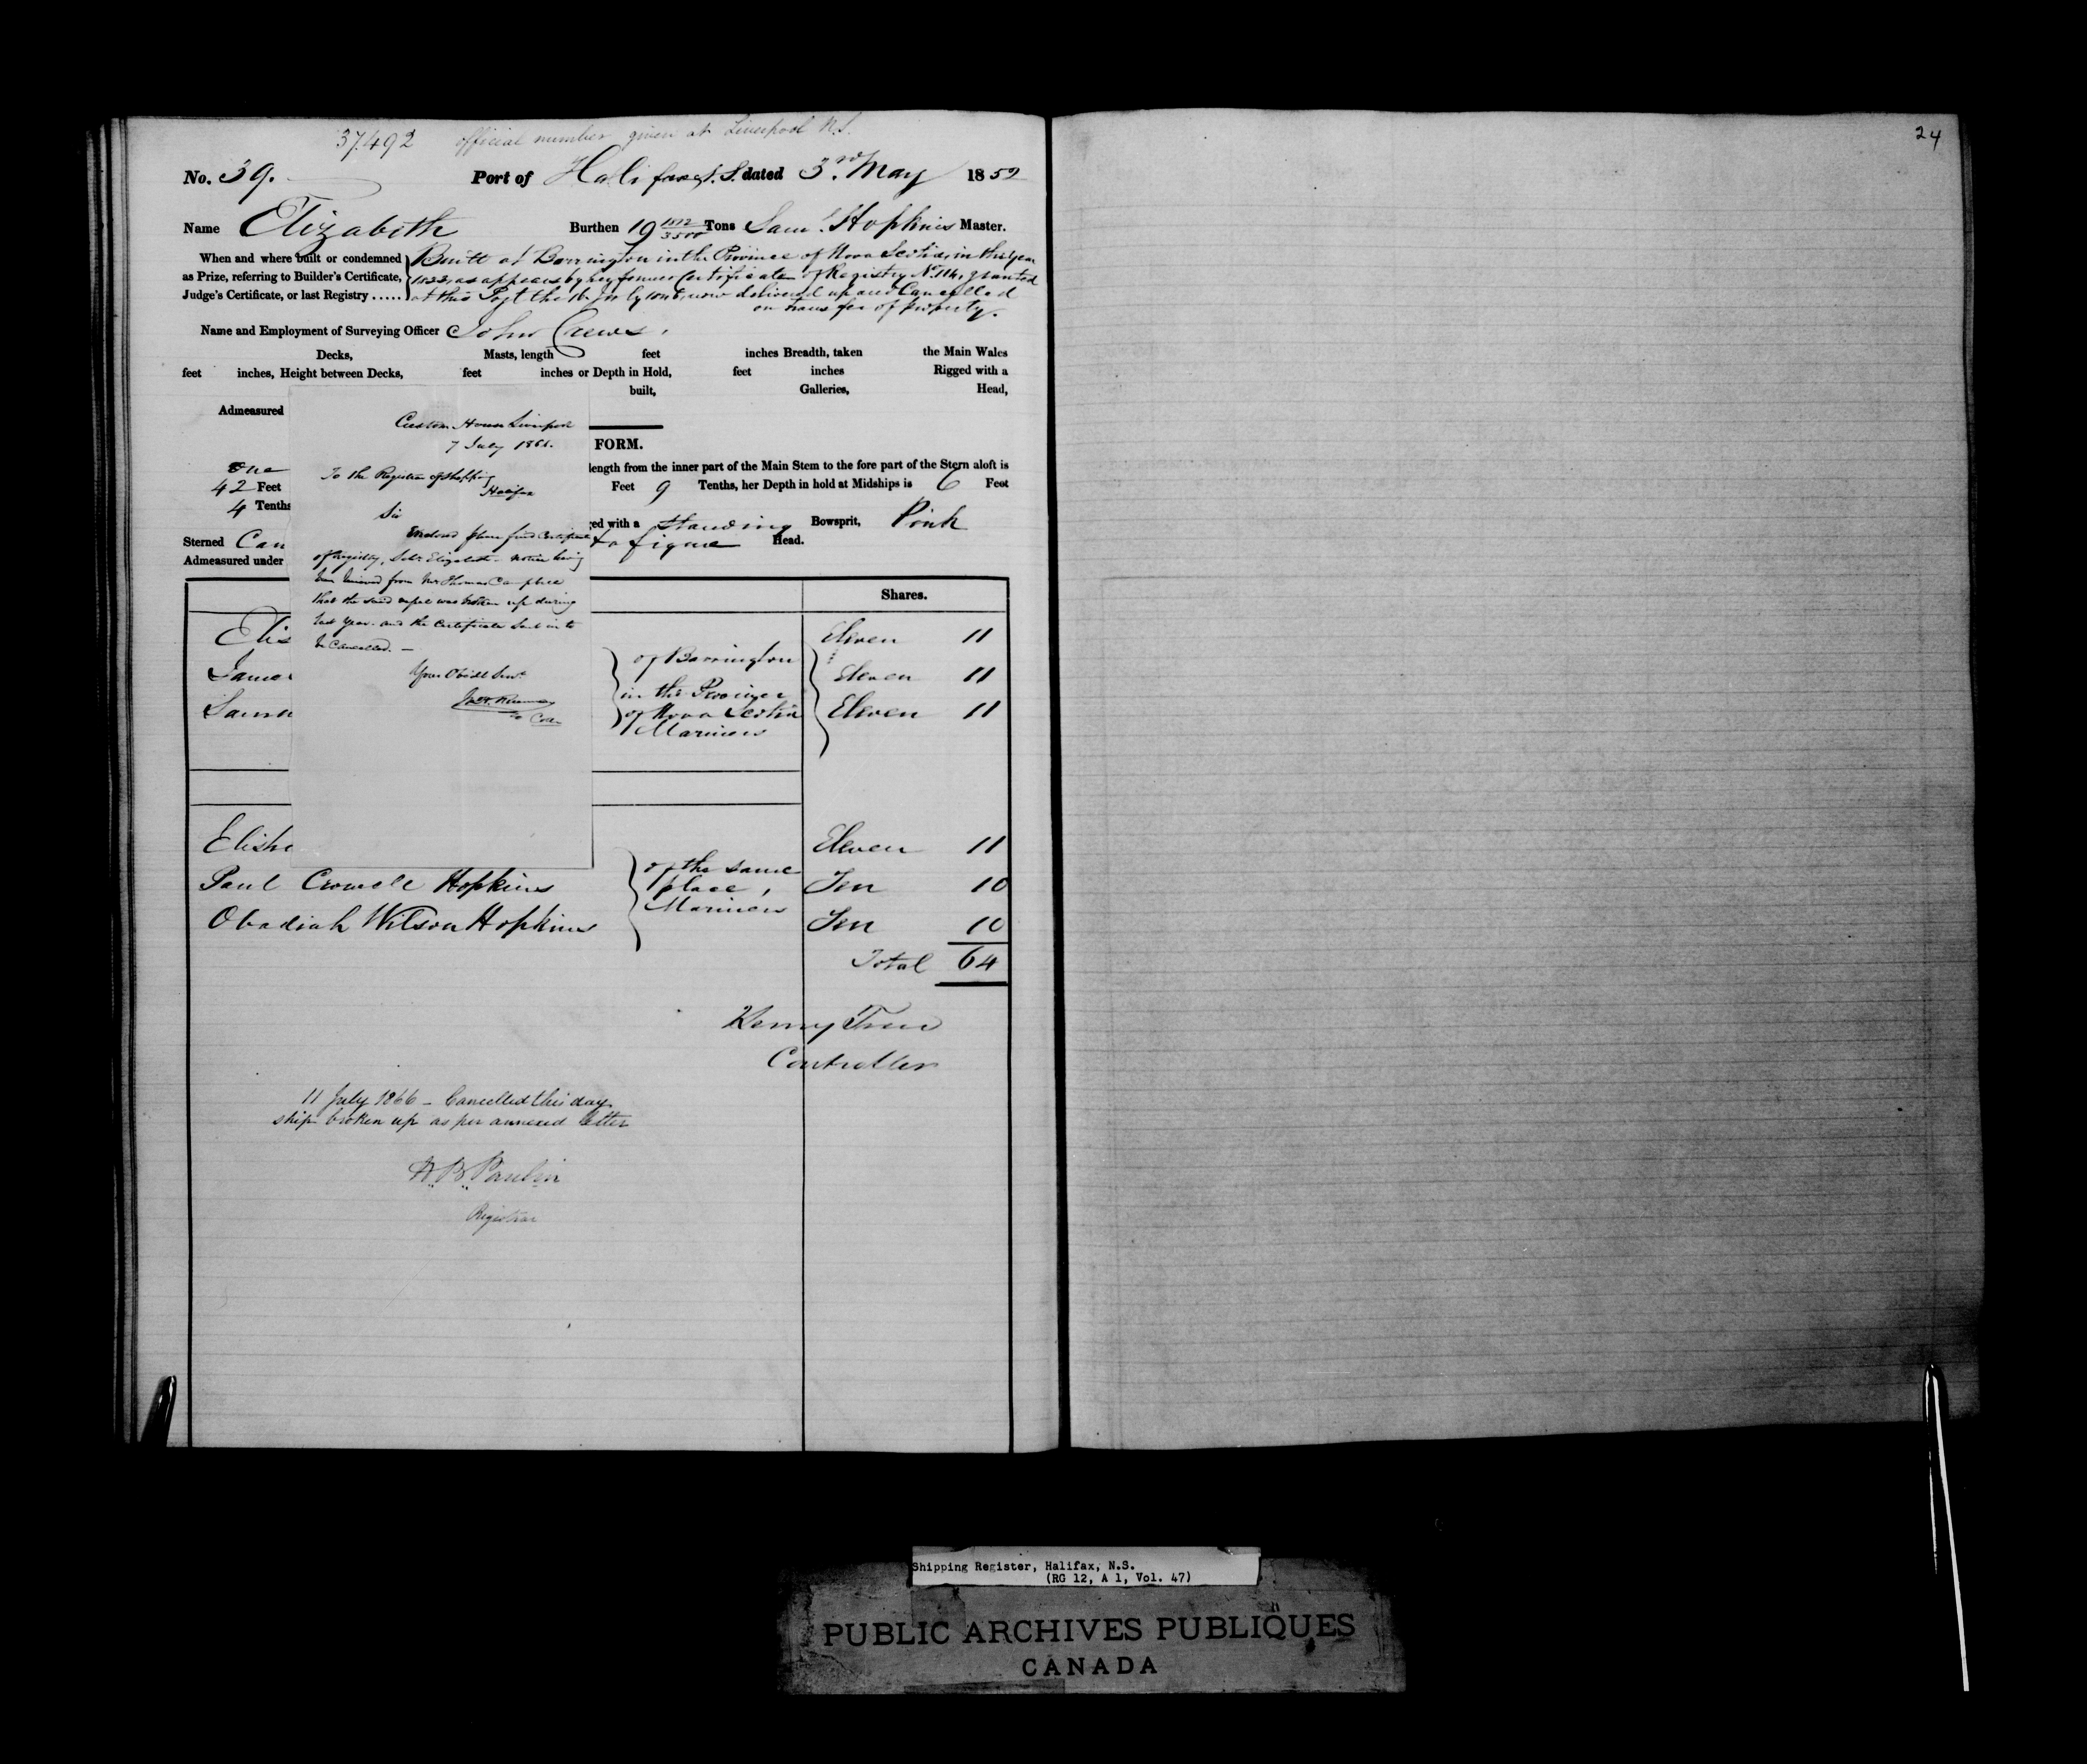 37.492 official number given at Liverpool N.S.
24
No. 39. Port of Halifax N.S. dated 3rd May 1852
Name Elizabeth Burthen 19 Tons Saml. Hopkins Master.
When and where built or condemned
as Prize, referring to Builder's Certificate,
Judge's Certificate, or last Registry .....
Built at Barrington in the Province of Nova Scotia, in the year
as appears by her former Certificate of Registry No. 114, granted
at this Port the July now delivered up and Cancelled
on transfer of property.
Name and Employment of Surveying Officer John Crews.
Decks, Masts, length feet inches Breadth, taken the Main Wales
feet inches, Height between Decks, feet inches or Depth in Hold, feet inches Rigged with a
built, Galleries, Head,
Admeasured
FORM.
One length from the inner part of the Main Stem to the fore part of the Stern aloft is
42 Feet Feet 9 Tenths, her Depth in hold at Midships is 6 Feet
4 Tenths
ged with a Standing Bowsprit, Pink
Sterned figure Head.
Admeasured under
Custom House Liverpool
7 July 1866.
To the Registrar of Shipping
Halifax
Sir
Enclosed please find Certificate
of Registry, Schr Elizabeth. notice having
been received from Mr Thomas Campbell
that the said vessel was broken up during
last year. and the certificate sent in to
be Cancelled. —
Your Obedt Servt
Shares.
Elis Eleven 11
James Eleven 11
Samu Eleven 11
of Barrington
in the Province
of Nova Scotia
Mariners
Elisha Eleven 11
Paul Crowell Hopkins Ten 10
Obadiah Wilson Hopkins Ten 10
of the same
place,
Mariners
Total 64
Henry Tree
Controller
11 July 1866 – Cancelled this day
ship broken up as per annexed letter
Registrar
Shipping Register, Halifax, N.S.
(RG 12, A 1, Vol. 47)
PUBLIC ARCHIVES PUBLIQUES
CANADA